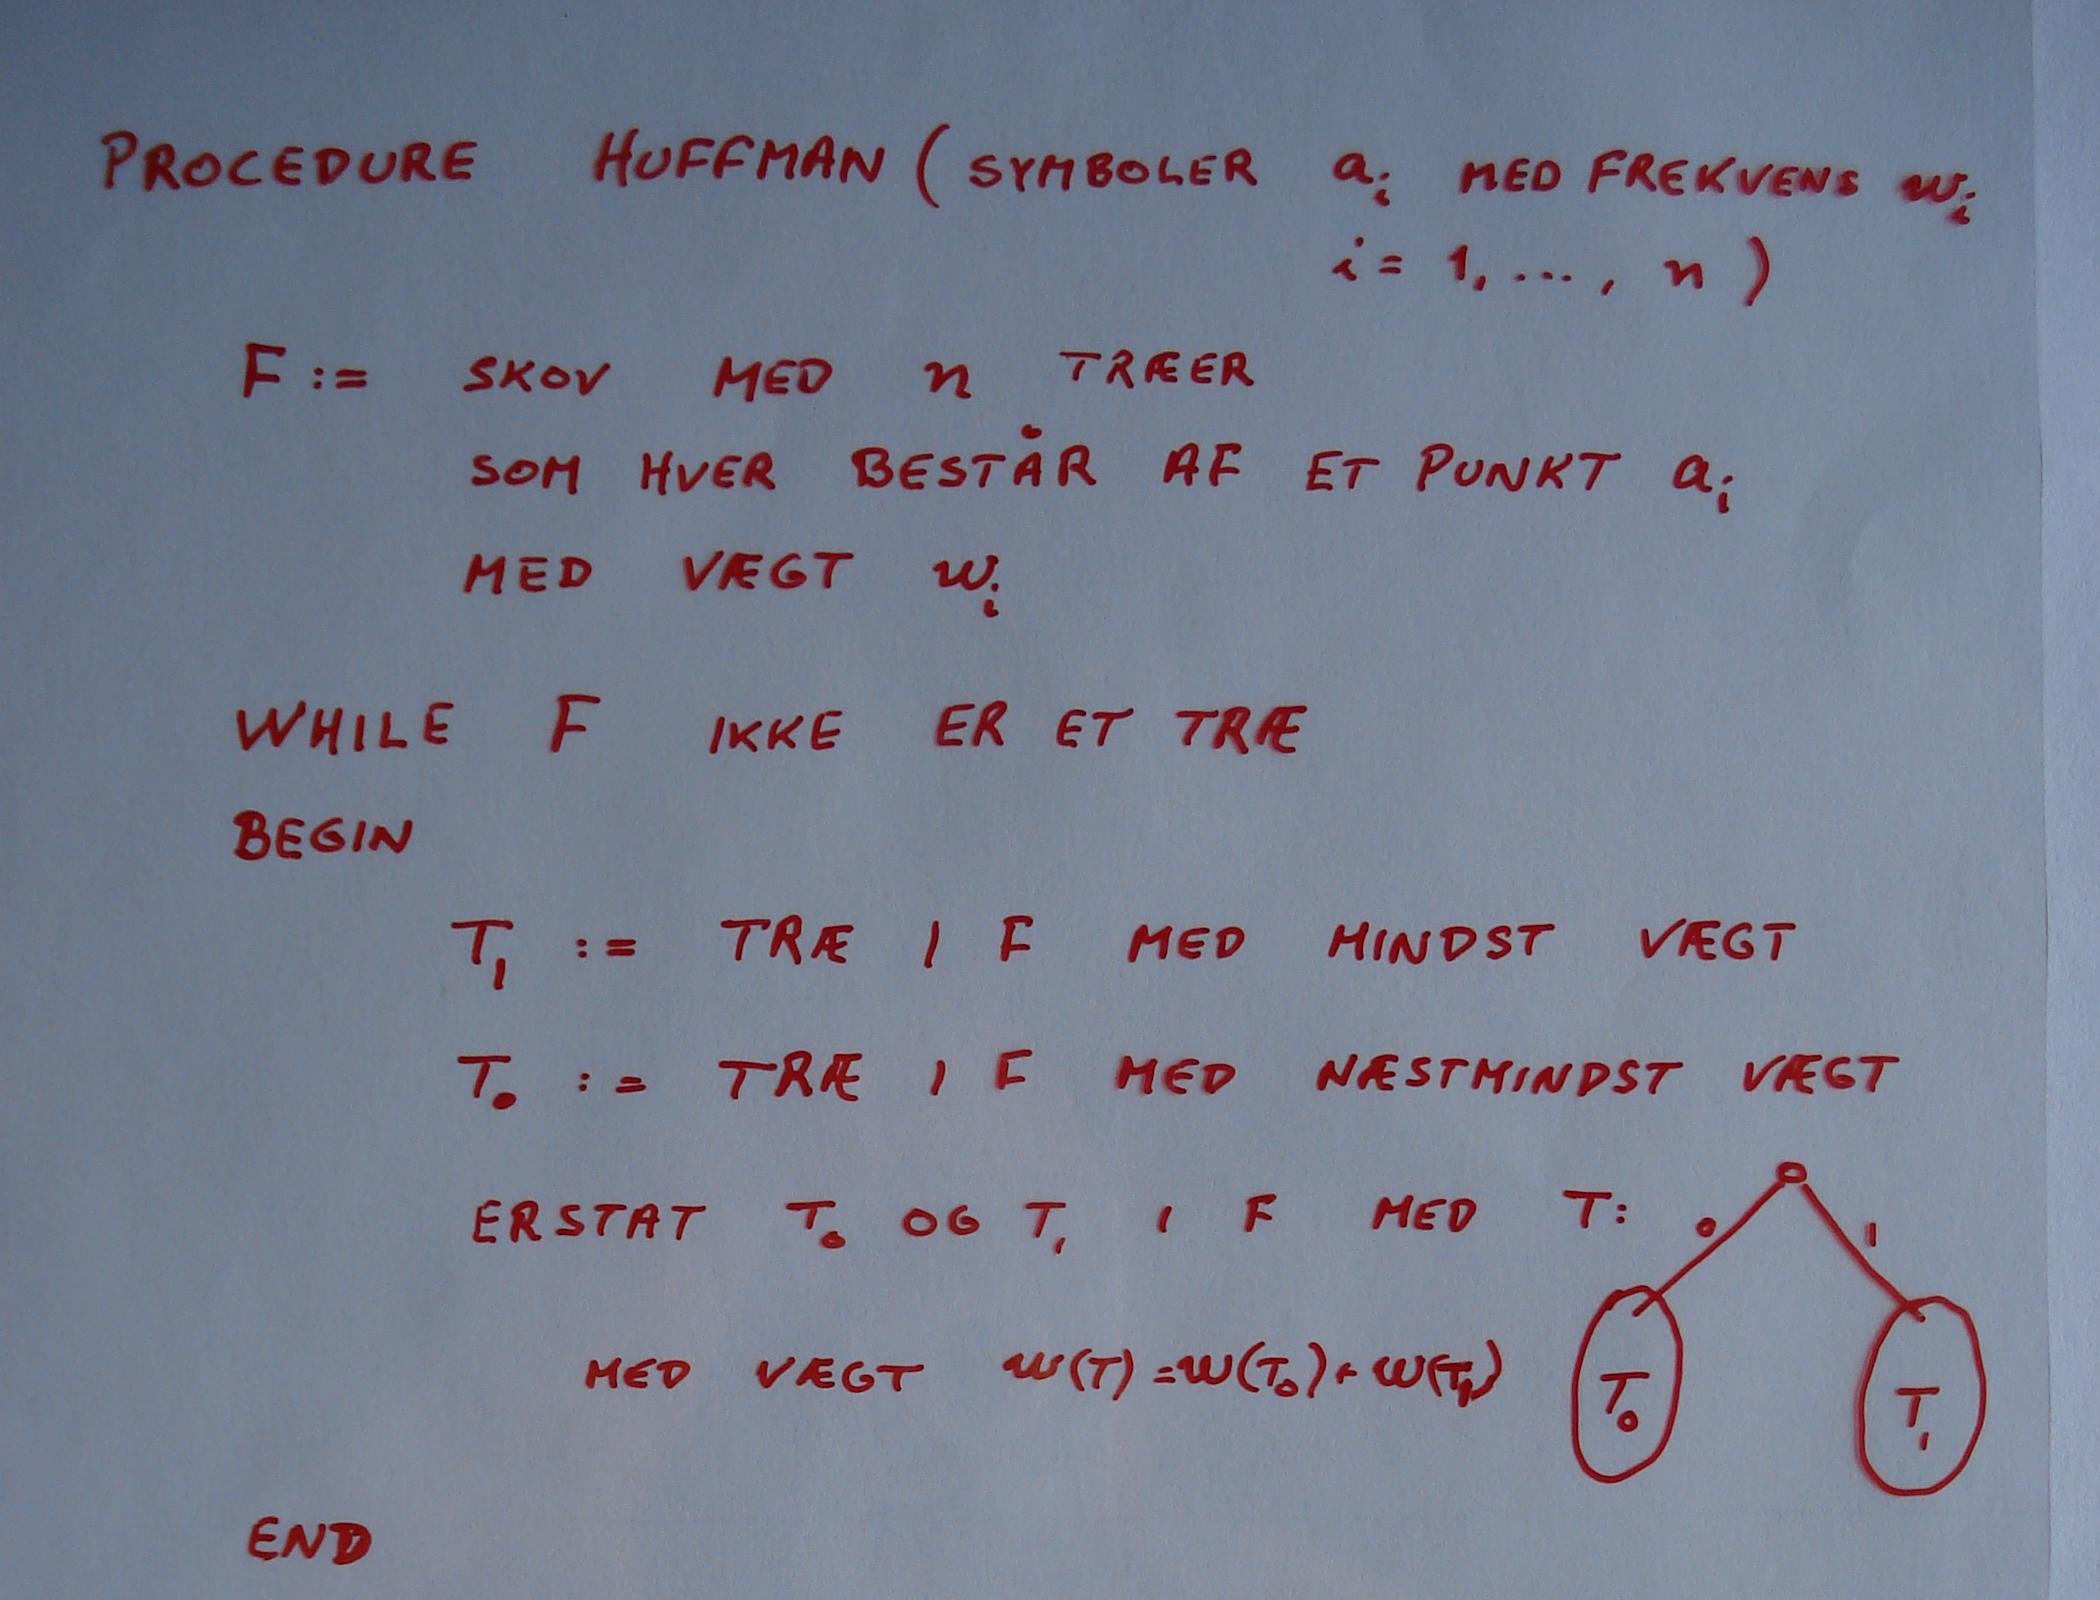 PROCEDURE HUFFMAN (SYMBOLER aᵢ MED FREKVENS wᵢ
i = 1, ..., n)
F := SKOV MED n TRÆER
SOM HVER BESTÅR AF ET PUNKT aᵢ
MED VÆGT wᵢ
WHILE F IKKE ER ET TRÆ
BEGIN
T₁ := TRÆ I F MED MINDST VÆGT
T₀ := TRÆ I F MED NÆSTMINDST VÆGT
ERSTAT T₀ OG T₁ I F MED T: 0 1
MED VÆGT w(T) = w(T₀) + w(T₁) T₀ T₁
END